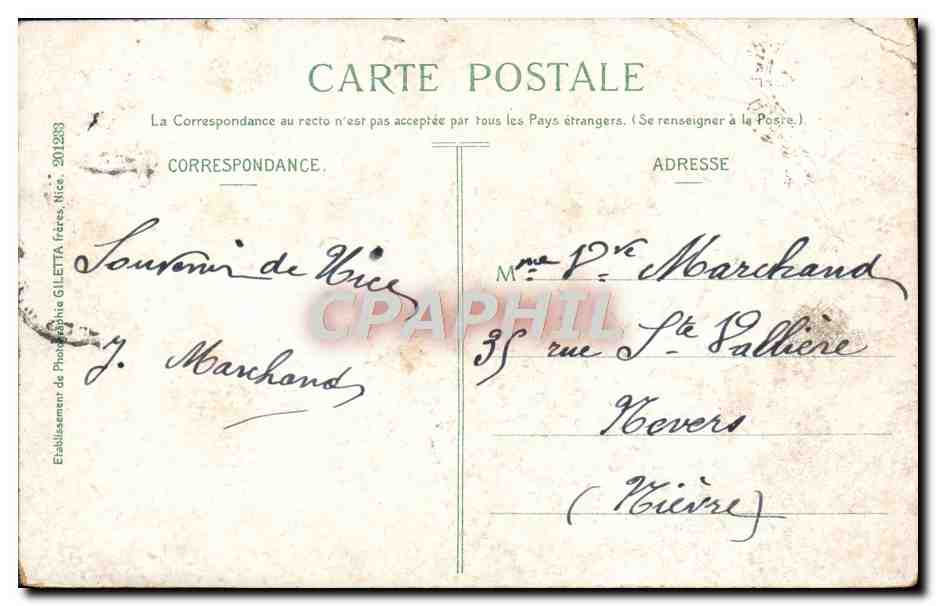 CARTE POSTALE
La Correspondance au recto n'est pas acceptée par tous les Pays étrangers. (Se renseigner à la Poste.)
CORRESPONDANCE.
Souvenir de Nice
J. Marchand
ADRESSE
Mme Vve Marchand
35 rue Ste Vallière
Nevers
(Nièvre)
Etablissement de Photographie GILETTA frères, Nice. 201233
CPAPHIL